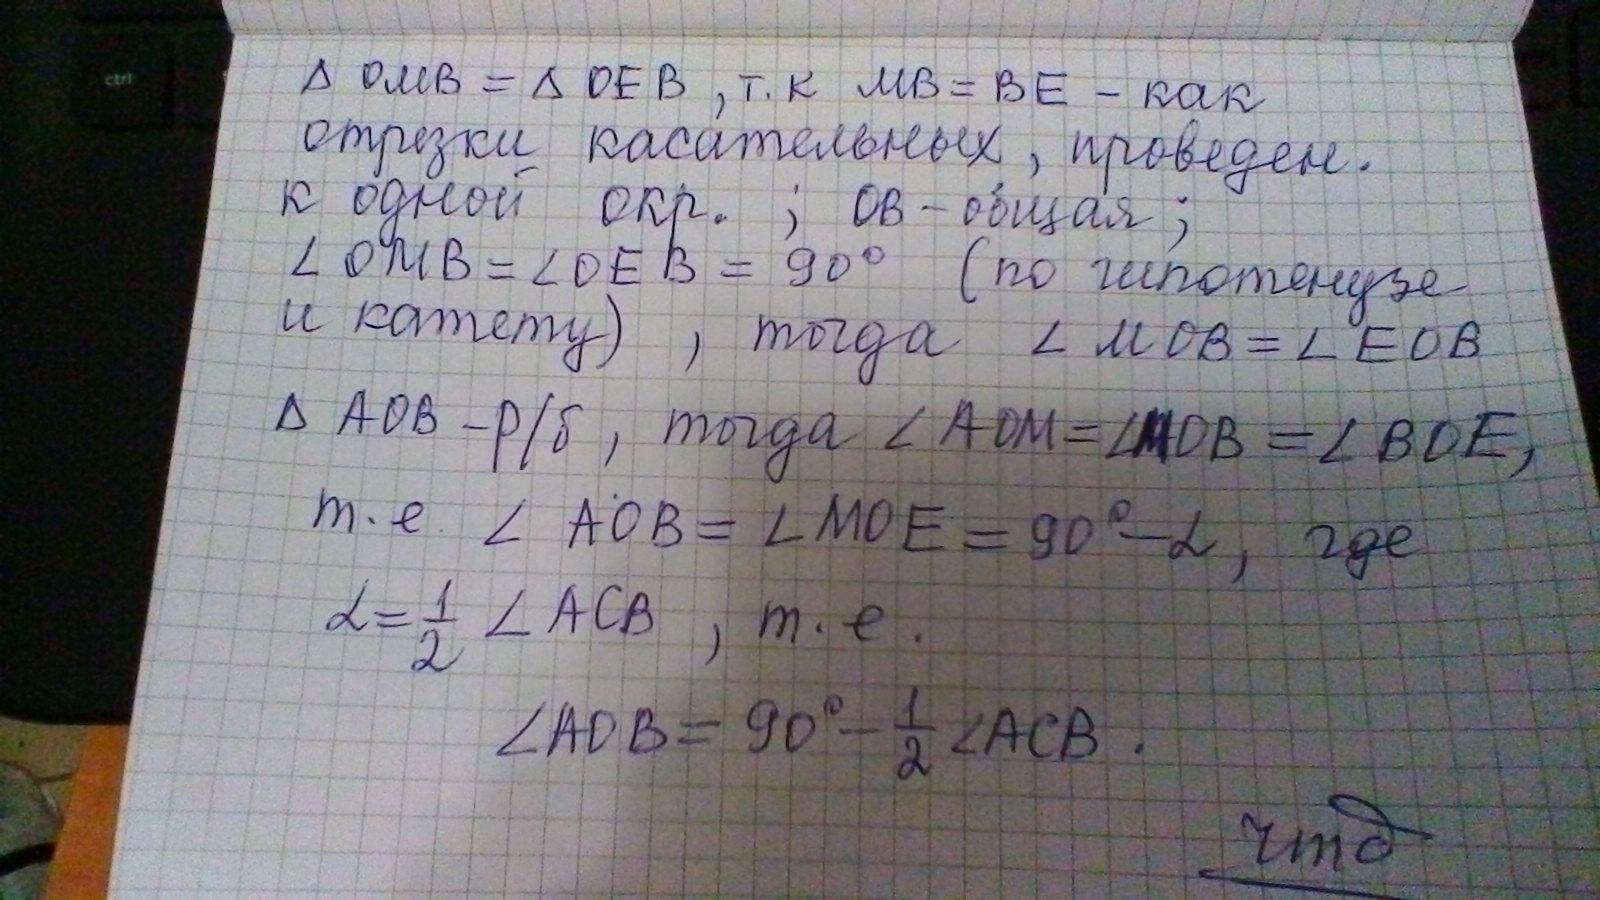 ctrl
Δ OMB = Δ OEB, т.к MB = BE - как
отрезки касательных, проведен.
к одной окр. ; OB - общая;
∠ OMB = ∠OEB = 90° (по гипотенузе
и катету), тогда ∠ MOB = ∠ EOB
Δ AOB - р/б, тогда ∠ AOM = ∠MOB = ∠ BOE,
т.е. ∠ AOB = ∠MOE = 90° - α, где
α = 1/2 ∠ ACB, т.е.
∠AOB = 90° - 1/2 ∠ACB.
чтд